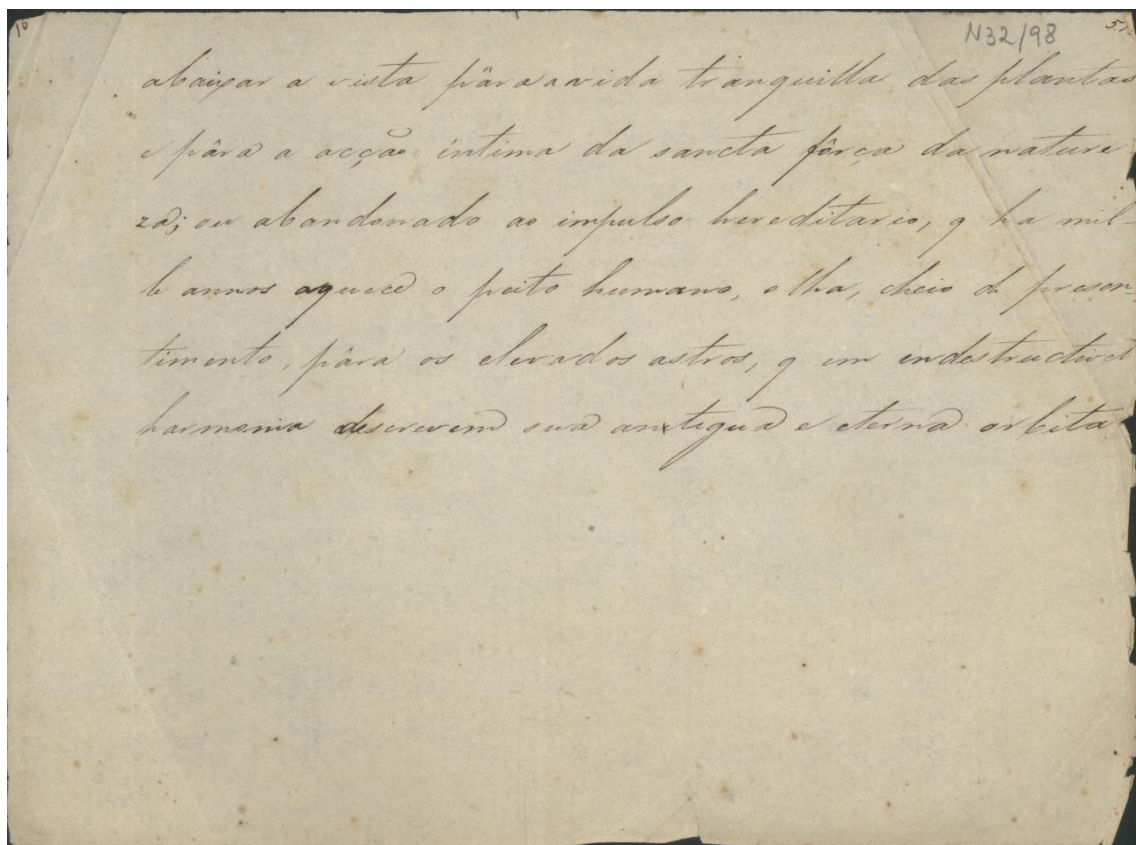 16
N32/98
abaixar a vista pâra a vida tranquilla das plantas
e pâra a acção íntima da sancta fôrça da nature
za; ou abandonado ao impulso hereditario, q ha mil-
le annos aquece o peito humano, olha, cheio de presen-
timento, pâra os elevados astros, q em endestructivel
harmonia descrevem sua antigua e eterna orbita